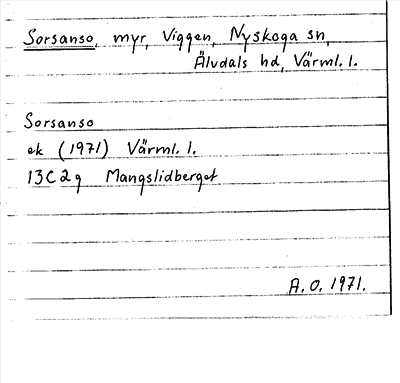 Sorsanso, myr, Viggen, Nyskoga sn,
Älvdals hd, Värml. l.
Sorsanso
ek (1971) Värml. l.
13C2g Mangslidberget
A.O. 1971.